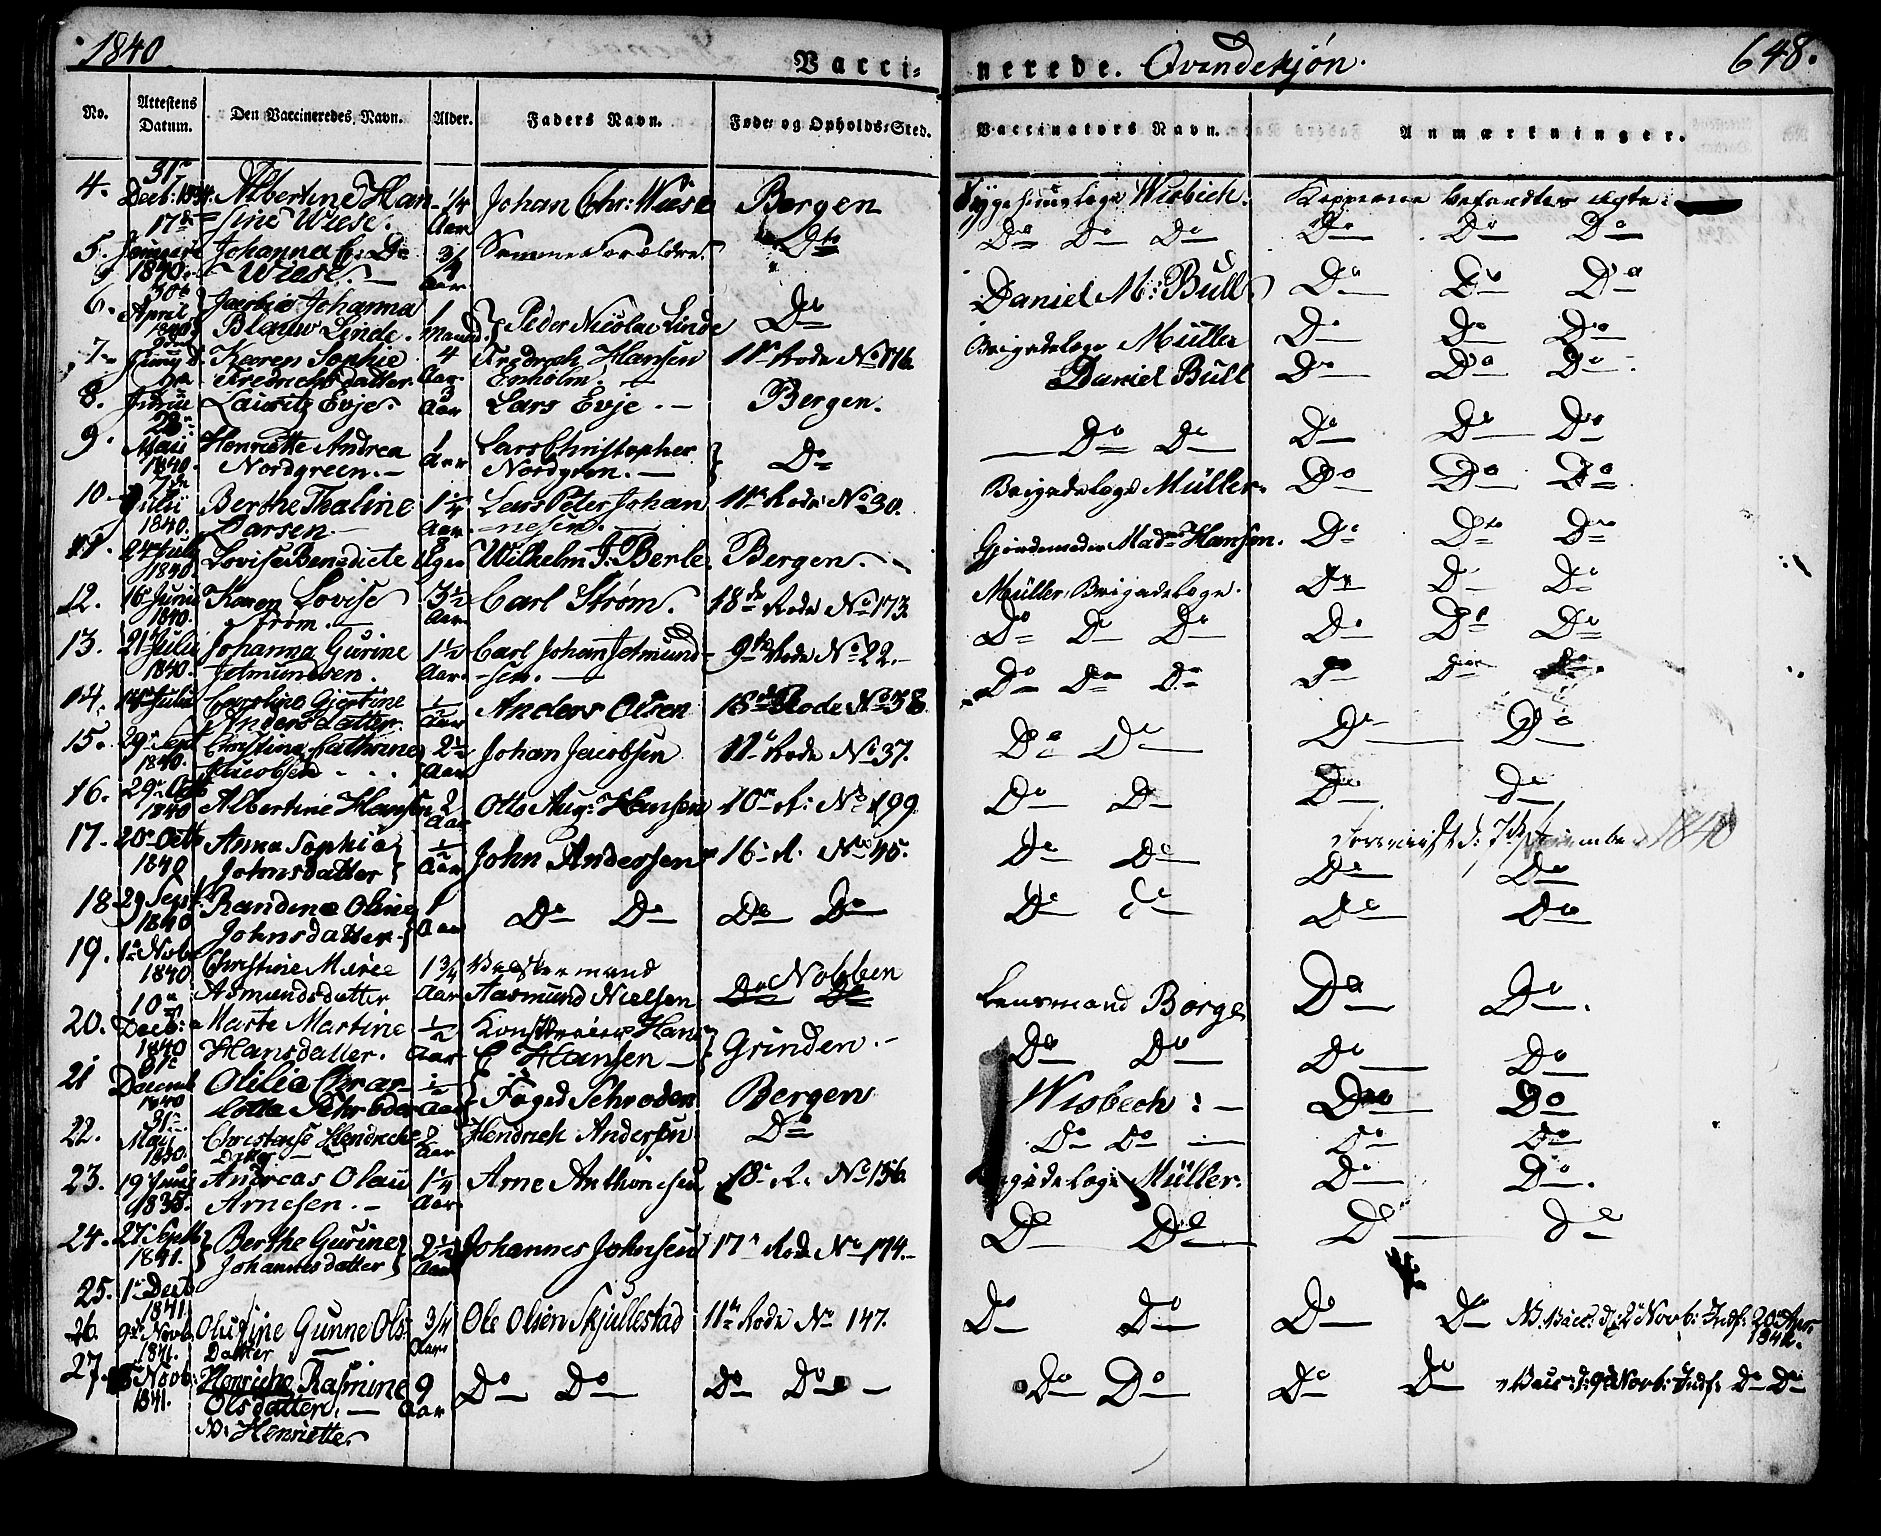 1840
Vacci- nerede. Qvindekjøn. 648.
No. Attestens Datum. Den Vaccineredes Navn. Alder. Faders Navn. Føde- og Opholds-Sted. Vaccinators Navn. Anmærkninger.
4. 31te Decb: Albertine Han- 1/4 Johan Chr: Wiese Bergen Wisbech. Kopperne befandtes ægte.
17de sine Wiese. Aar
5. Januari Johanna C: De 3/4 Samme Forældre. Dto Do Do Do Do Do Do
1840. Wiese. Aar
6. 30te April Jacobia Johanna 1 Peder Nicolai Linde Do Daniel M: Bull Do Do Do
1840 Blauw Linde. Maaned.
7. Juny Karen Sophie 4 Fredrich Hansen 11te Rode No 176. Brigadelæge Müller Do Do Do
Fredrichsdatter Aar Enholm.
8. Lauritz Evje. 3 Aar Lars Evje. Bergen. Daniel Bull Do Do Do
9. 22de Maii Henriette Andrea 1 Lars Christopher Do Do Do Do Do Do
1840. Nordgreen. Aar Nordgren.
10. 7de Julii Berthe Thaline 1 1/4 Lars Peter Johan 11te Rode No 30. Brigadelæge Müller. Do Do Do
1840. Larsen Aar. nesen.
11. 24de July Lovise Benedicte 8 Uger Wilhelm J: Berle. Bergen. Gjordemoder Mad: Hansen. Do Dto Do
1840.
12. 16de Juni Karen Lovise 3 1/2 Carl Strøm. 18de Rode No 173. Müller, Brigadelæge. Do Do Do
1840. Strøm. Aar.
13. 21de Julii Johanna Gurine 1 1/2 Carl Johan Jetmund- 9de Rode No 22. Do Do Do Do Do Do
1840. Jetmundsen. Aar. sen.
14. 14de Julii Caroline Gjertine 1/2 Anders Olsen 18de Rode No 38 Do Do Do Do Do Do
Andersdatter. Aar
15. 29de Sept Christina Cathrine 2 1/2 Johan Jacobsen 12te Rode No 37. Do Do Do Do
1840. Jacobsen Aar
16. 29de Albertine Hansen 2 Otto Aug: Hansen 10de R: No 199. Do Do Do Do
1840 Aar
17. 20de Octb Anna Sophia 1/2 John Andersen 16de R. No 45. Do Do Do Do
1840 Johnsdatter Aar
d: 7de November 1840
18. 29 Sept. Randine Oline 1 Do Do Do Do Do Do Do Do
1840 Johnsdatter Aar
19. 1te Novb Christine Marie 1 3/4 Nobben Lensmand Borge Do Do.
1840 Asmundsdatter Aar Aasmund Nielsen Do Do
20. 10de Decb: Marte Martine 1/2 Hans Grinden. Do Do Do Do
1840 Hansdatter. Aar C Hansen
21 Decemb Otilia Char- 1/2 Foged Schrøder Bergen Wisbech: Do Do
1840 lotta Schrøder Aar
22. 31te Maii Christense Hendrich Hendrich Andersen Do Do Do Do Do
1840. Datter Aar
23. 19 Juni Andreas Olau 1 1/4 Arne Anthonisen 18de R. No 156. Brigadelæge Müller. Do Do.
1838. Arnesen. Aar.
24. 27de Septb Berthe Gurine 2 1/2 Johannes Johnsen 17de Rode No 174. Do Do Do do
1841. Johannesdatter Aar
25. 1te Decb
1841.
26. 9de Novb Gunne Ols- 3/4 Ole Olsen Skjullestad 11te Rode No 147. Do Do Do Do
1841. Datter Aar
27. Novb: Henriche Rasmine 9 Do Do Do Do Do Do Do Do Do Do
1841. Olsdatter. Aar
N: Henriette.